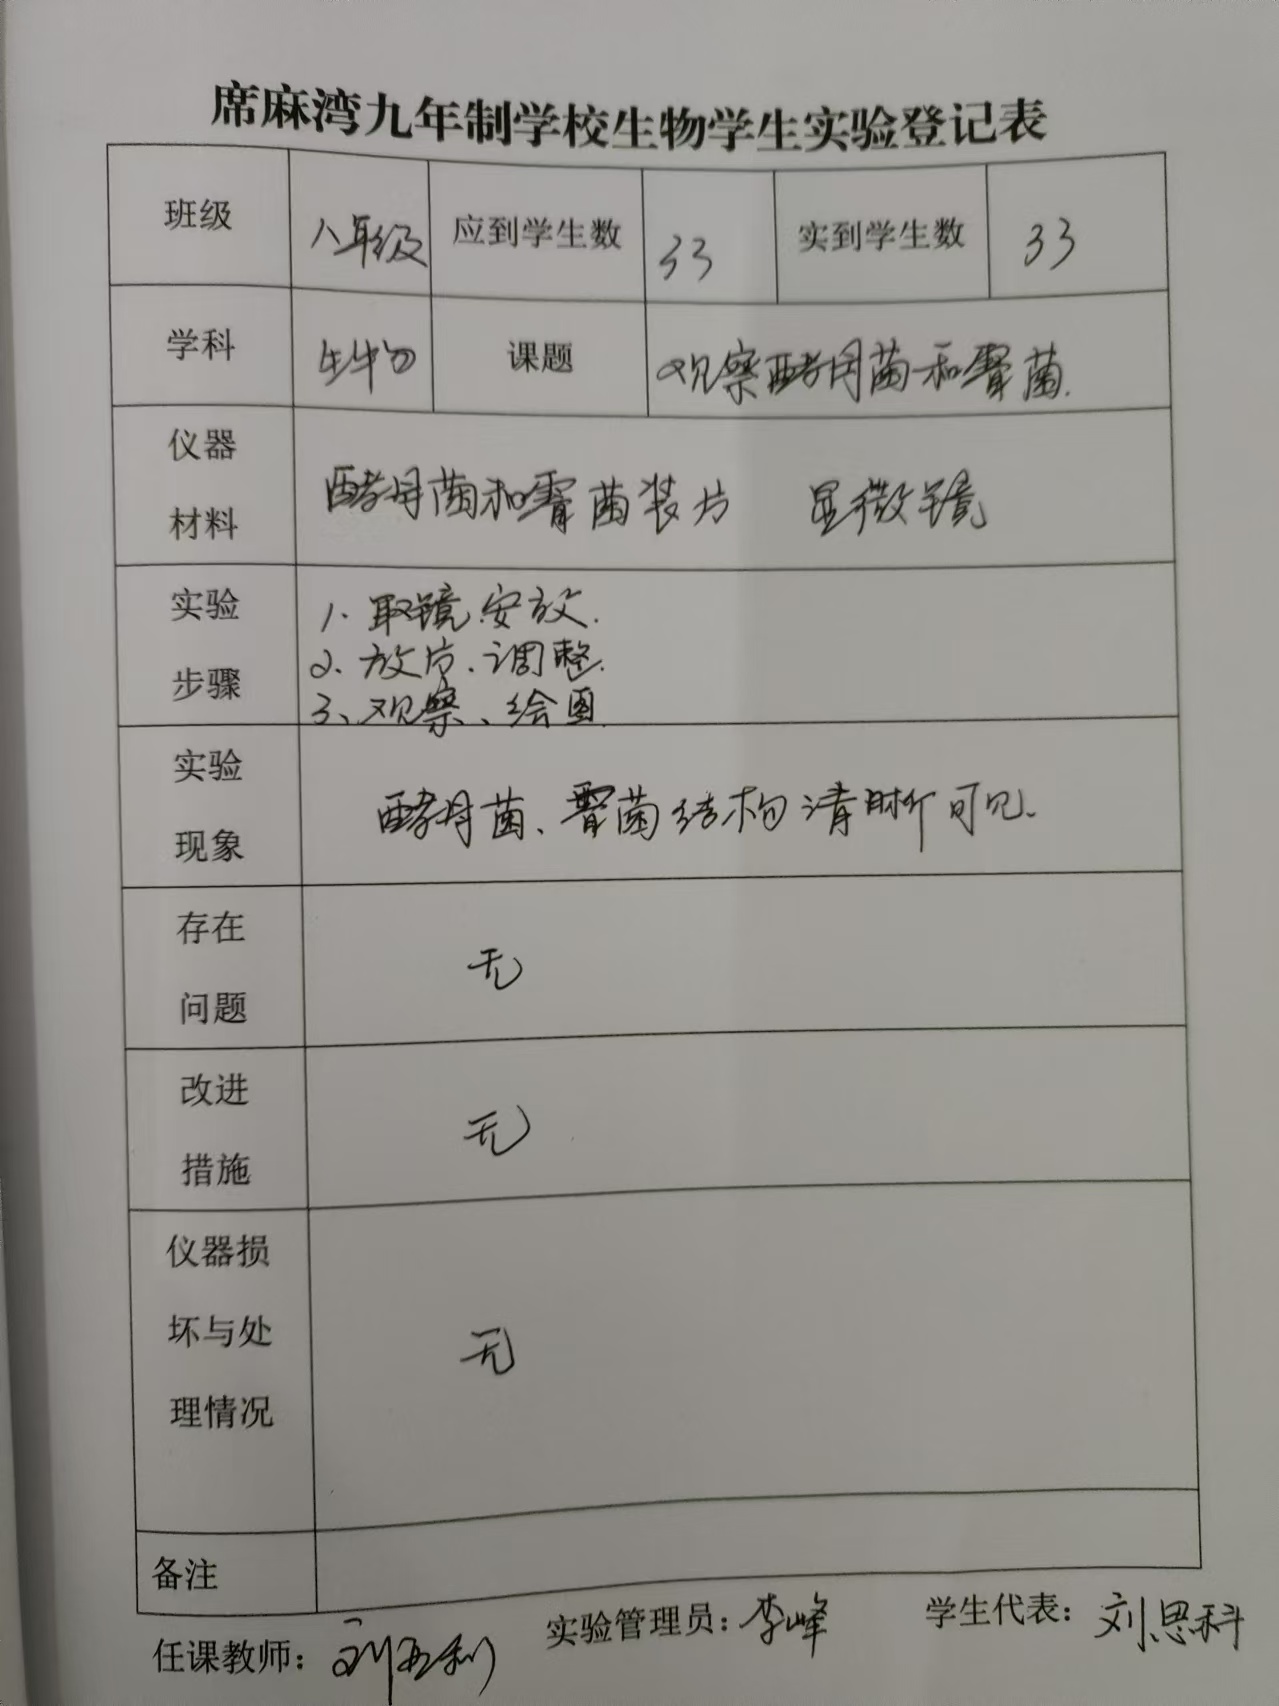 席麻湾九年制学校生物学生实验登记表
班级 八年级 应到学生数 33 实到学生数 33
学科 生物 课题 观察酵母菌和霉菌.
仪器
材料
酵母菌和霉菌装片 显微镜
实验
步骤
1、取镜、安放.
2、放片、调整.
3、观察、绘图.
实验
现象
酵母菌、霉菌结构清晰可见.
存在
问题
无
改进
措施
无
仪器损
坏与处
理情况
无
备注
任课教师: 实验管理员:李峰 学生代表:刘思科